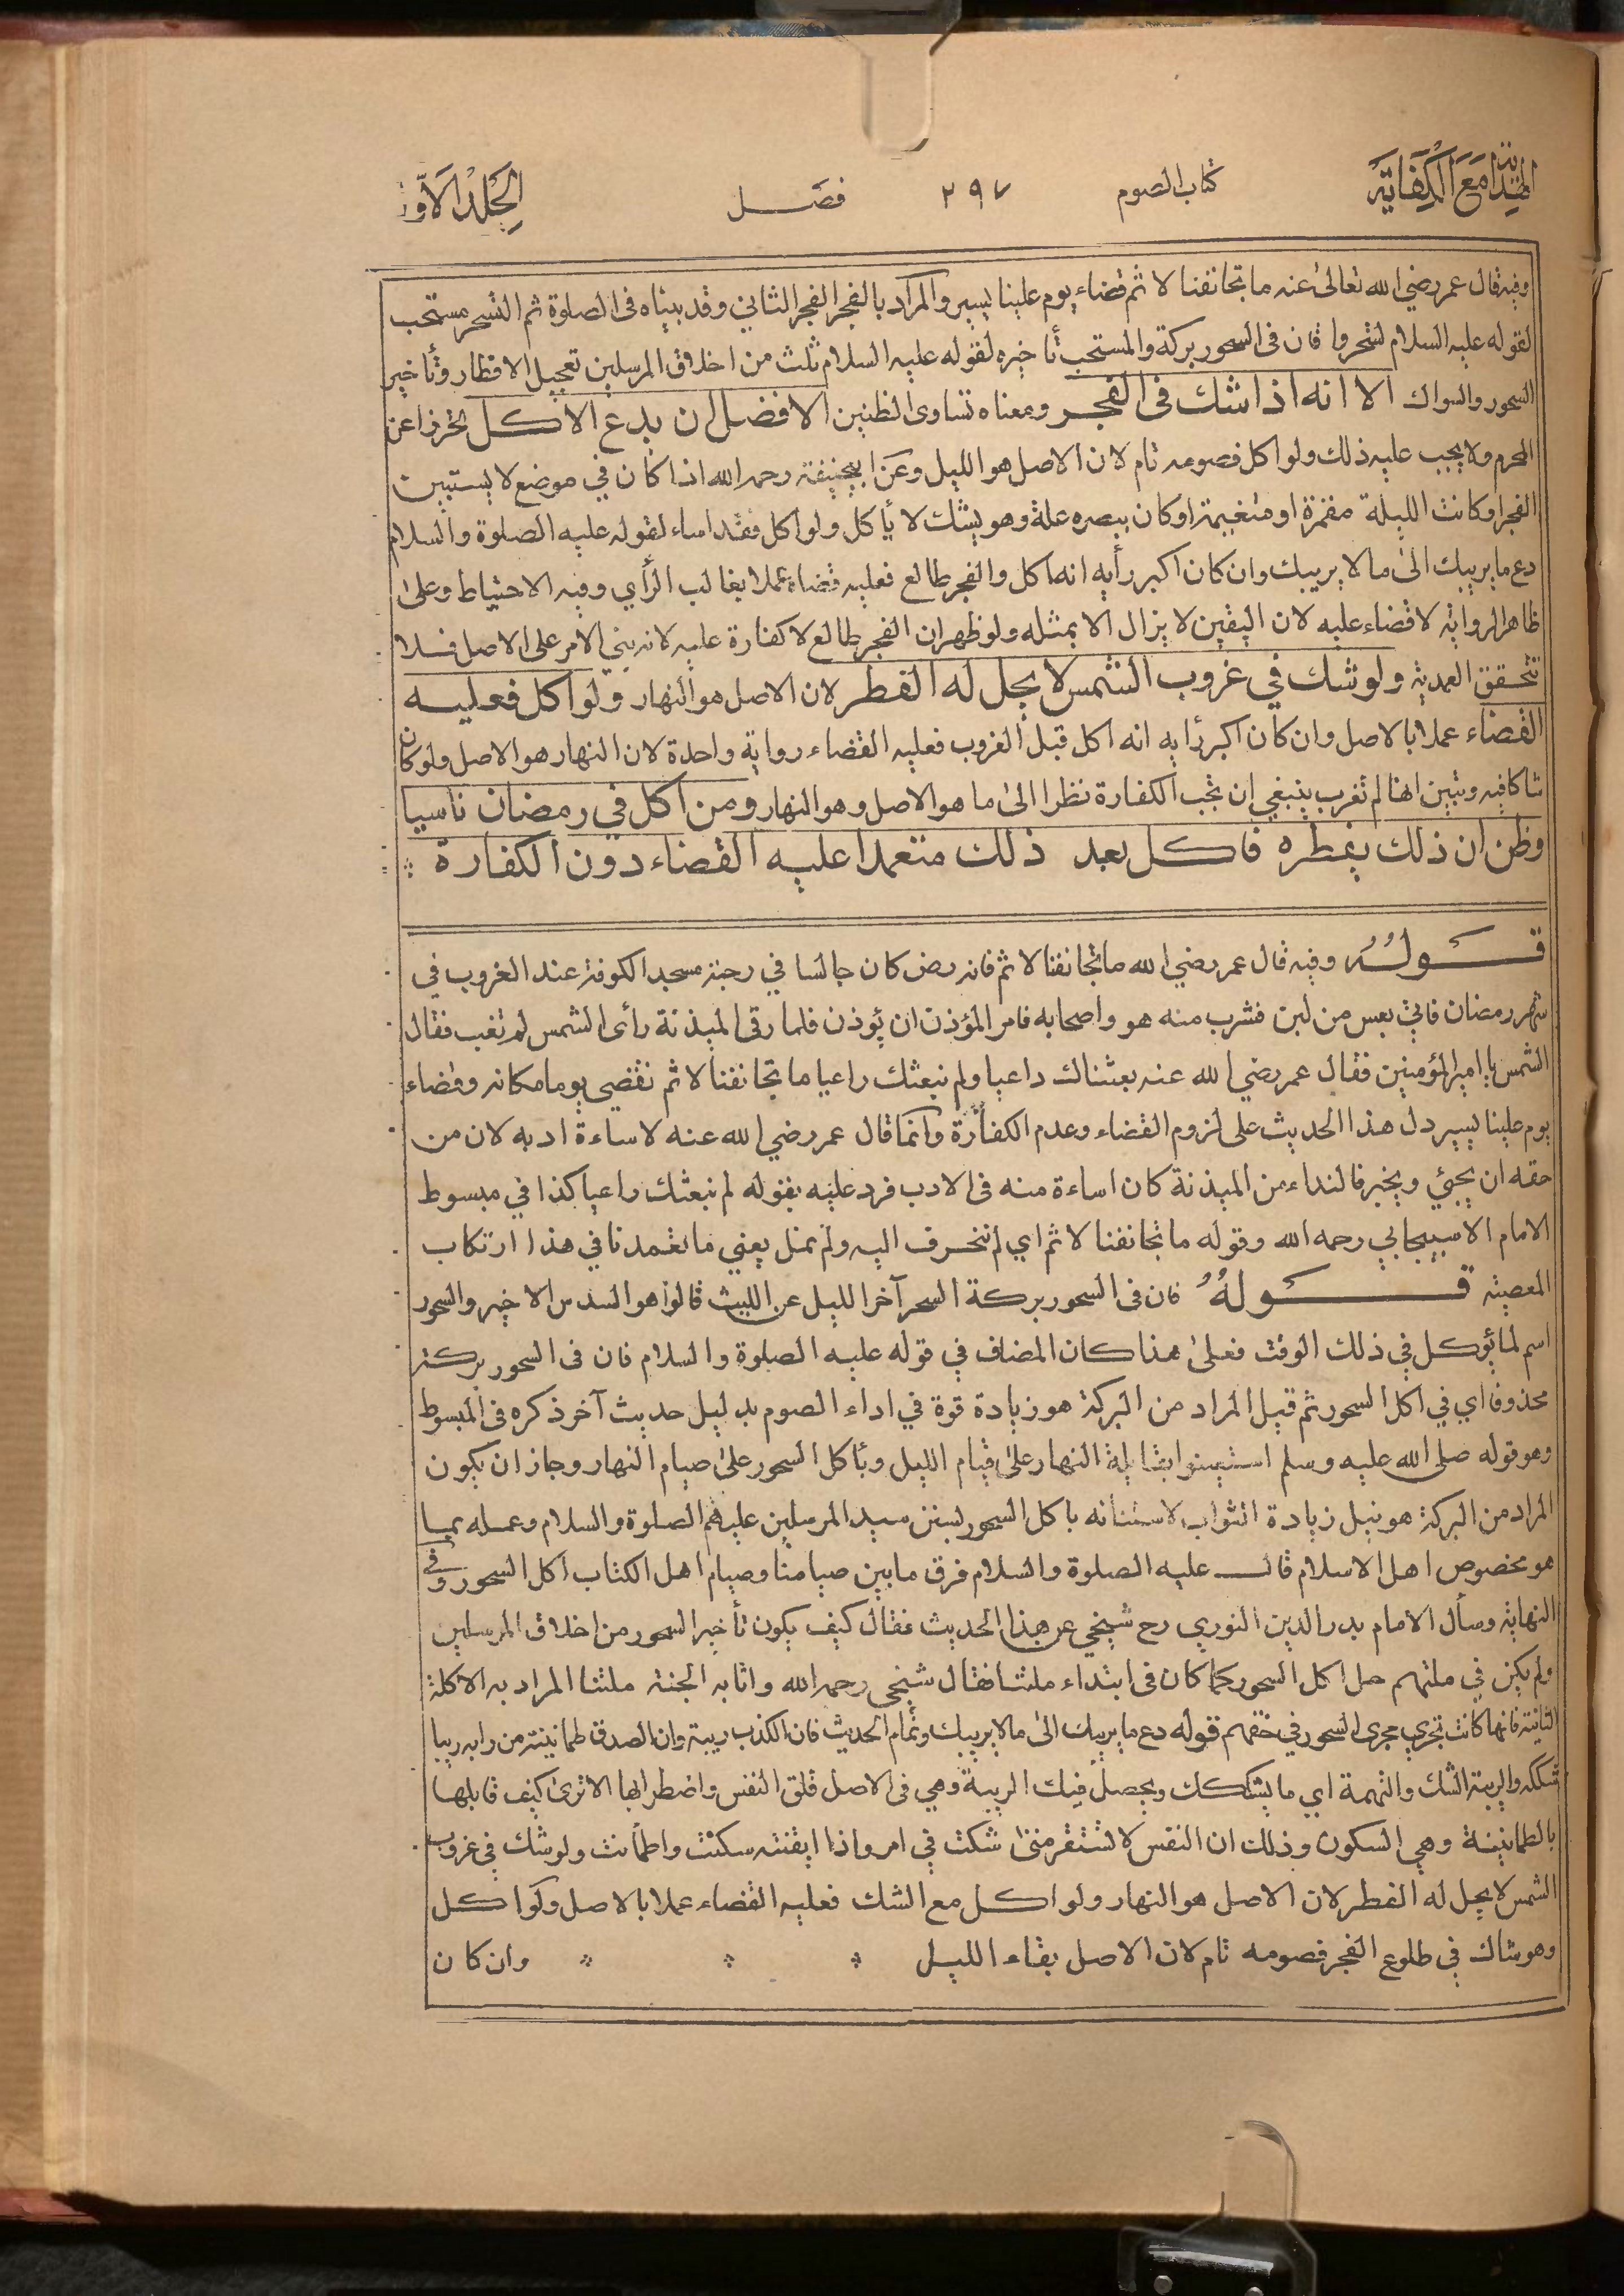 الهداية مع الكفاية
كتاب الصوم
٢٩٧
فصل
الجلد الاول
وفيه قال عمر رضي الله تعالى عنه ما تجانفنا لاثم قضاء يوم علينا يسير والمراد بالفجر الفجر الثاني وقد بيناه فى الصلوة ثم التسحر مستحب
لقوله عليه السلام تسحروا فان فى السحور بركة والمستحب تأخيره لقوله عليه السلام ثلث من اخلاق المرسلين تعجيل الافطار وتأخير
السحور والسواك الا انه اذا شك فى الفجر ومعناه تساوى الظنين الافضل ان يدع الاكل تحرزا عن
المحرم ولا يجب عليه ذلك ولو اكل فصومه تام لان الاصل هو الليل وعن ابيحنيفة رحمه الله اذا كان في موضع لا يستبين
الفجر او كانت الليلة مقمرة او متغيمة او كان ببصره علة وهو يشك لا يأكل ولو اكل فقد اساء لقوله عليه الصلوة والسلام
دع ما يريبك الى ما لا يريبك وان كان اكبر رأيه انه اكل والفجر طالع فعليه قضاءه عملا بغالب الرأي وفيه الاحتياط وعلى
ظاهر الرواية لا قضاء عليه لان اليقين لا يزال الا بمثله ولو ظهر ان الفجر طالع لا كفارة عليه لانه بني الامر على الاصل فلا
تتحقق العمدية ولو شك في غروب الشمس لا يحل له الفطر لان الاصل هو النهار ولو اكل فعليه
القضاء عملا بالاصل وان كان اكبر رأيه انه اكل قبل الغروب فعليه القضاء رواية واحدة لان النهار هو الاصل ولو كان
شاكا فيه وتبين انها لم تغرب ينبغي ان تجب الكفارة نظرا الى ما هو الاصل وهو النهار ومن اكل في رمضان ناسيا
وظن ان ذلك يفطره فاكل بعد ذلك متعمدا عليه القضاء دون الكفارة
قوله وفيه قال عمر رضي الله ما تجانفنا لاثم فانه رض كان جالسا في رحبة مسجد الكوفة عند الغروب في
شهر رمضان فاتي بعس من لبن فشرب منه هو واصحابه فامر المؤذن ان يؤذن فلما رقى الميذنة رأى الشمس لم تغب فقال
الشمس يا امير المؤمنين فقال عمر رضي الله عنه بعثناك داعيا ولم نبعثك راعيا ما تجانفنا لاثم نقضي يوما مكانه وقضاء
يوم علينا يسير دل هذا الحديث على لزوم القضاء وعدم الكفارة وانما قال عمر رضي الله عنه لاساءة ادبه لان من
حقه ان يجئي ويخبر فالنداء من الميذنة كان اساءة منه فى الادب فرد عليه بقوله لم نبعثك راعيا كذا في مبسوط
الامام الاسبيجابي رحمه الله وقوله ما تجانفنا لاثم اي لم ننحرف اليه ولم نمل يعني ما تعمدنا في هذا ارتكاب
المعصية قوله فان فى السحور بركة السحر آخر الليل عن الليث قالوا هو السدس الاخير والسحور
اسم لما يؤكل في ذلك الوقت فعلى هذا كان المضاف في قوله عليه الصلوة والسلام فان فى السحور بركة
محذوفا اي في اكل السحور ثم قيل المراد من البركة هو زيادة قوة في اداء الصوم بدليل حديث آخر ذكره فى المبسوط
وهو قوله صلى الله عليه وسلم استعينوا بقايلة النهار على قيام الليل وبأكل السحور على صيام النهار وجاز ان يكون
المراد من البركة هو نيل زيادة الثواب لاستنانه باكل السحور بسنن سيد المرسلين عليهم الصلوة والسلام وعمله بما
هو مخصوص اهل الاسلام قال عليه الصلوة والسلام فرق ما بين صيامنا وصيام اهل الكتاب اكل السحور وفي
النهاية وسأل الامام بدر الدين النوري رح شيخي عن هذا الحديث فقال كيف يكون تأخير السحور من اخلاق المرسلين
ولم يكن في ملتهم حل اكل السحور كما كان فى ابتداء ملتنا فقال شيخي رحمه الله واثابه الجنة ملتنا المراد به الاكلة
الثانية فانها كانت تجري مجرى السحور في حقهم قوله دع ما يريبك الى ما لا يريبك وتمام الحديث فان الكذب ريبة وان الصدق طمانينة من رابه ريبا
شككه والريبة الشك والتهمة اي ما يشكك ويحصل فيك الريبة وهي فى الاصل قلق النفس واضطرابها الا ترى كيف قابلها
بالطمانينة وهي السكون وذلك ان النفس لا تستقر متى شكت في امر واذا ايقنته سكنت واطمأنت ولو شك في غروب
الشمس لا يحل له الفطر لان الاصل هو النهار ولو اكل مع الشك فعليه القضاء عملا بالاصل ولو اكل
وهو شاك في طلوع الفجر فصومه تام لان الاصل بقاء الليل
وان كان